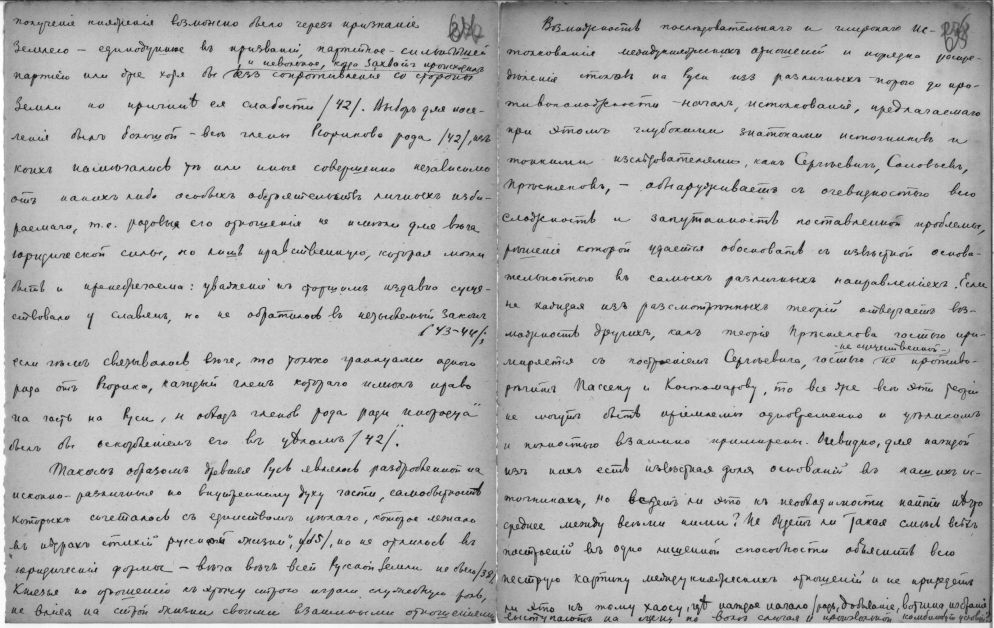 получение княжения возможно было через признание
Землею – единодушное въ призванiи, партiйное – сильнѣйшей
и невольное, когда захватъ происходилъ
партiею или же хотя бы безъ сопротивленiя со стороны
Земли по причинѣ ея слабости /42/. Выборъ для насе-
ленiя былъ большой – всѣ члены Рюрикова рода /42/, изъ
коихъ намѣчались тѣ или иные совершенно независимо
отъ какихъ либо особыхъ обстоятельствъ личныхъ изби-
раемаго, т.е. родовыя его отношенiя не имѣли для вѣча
юридической силы, но лишь нравственную, которая могла
быть и пренебрегаема: уваженiе къ старшимъ издавна суще-
ствовало у славянъ, но не обратилось въ незыблемый законъ
/43-44/;
если чѣмъ связывалось вѣче, то только границами одного
рода отъ Рюрика, каждый членъ котораго имѣлъ право
на часть на Руси, и обходъ членовъ рода ради
былъ бы оскорбленiемъ его въ цѣломъ /42/.
Такимъ образомъ древняя Русь являлась раздробленной на
исконно-различные по внутреннему духу части, самобытность
которыхъ сочеталась съ единствомъ цѣлаго, которое лежало
въ нѣдрахъ стихiй русской жизни, /45/, но не отлилось въ
юридическiя формы – вѣча всей Русской Земли не было /38/
Князья по отношенiю къ строю играли служебную роль,
не влiяя на строй жизни своими взаимными отношенiями
Возможность послѣдовательнаго и широкаго ис-
толкованiя междукняжескихъ отношенiй и порядка распре-
дѣленiя столовъ на Руси изъ различныхъ порою до про-
тивоположности началъ, истолкованiя, предлагаемаго
при этомъ глубокими знатоками источниковъ и
тонкими изслѣдователями, какъ Сергѣевичъ, Соловьевъ,
Прѣсняковъ, – обнаруживаетъ съ очевидностью всю
сложность и запутанность поставленной проблемы,
рѣшенiе которой удается обосновать съ извѣстной основа-
тельностью въ самыхъ различныхъ направленiяхъ. Если
не каждая изъ разсмотрѣнныхъ теорiй отвергаетъ воз-
можность другихъ, какъ теорiя Прѣснякова частью при-
не существенно
миряется съ построенiемъ Сергѣевича, частью не противо-
рѣчитъ Пассеку и Костомарову, то все же всѣ эти теорiи
не могутъ быть прiемлемы одновременно и цѣликомъ
и полностью взаимно примирены. Очевидно, для каждой
изъ нихъ есть извѣстная доля основанiй въ нашихъ ис-
точникахъ, но ведетъ ли это къ необходимости найти нѣчто
среднее между всѣми ними? Не будетъ ли такая смѣсь всѣхъ
построенiй въ одно лишенной способности объяснить всю
пеструю картину междукняжескихъ отношенiй и не приведетъ
ли это къ тому хаосу, гдѣ каждое начало /родъ, добыванiе, вотчина, избранiе
выступаютъ на сцену по волѣ случая и произвольной комбинацiи условiй?